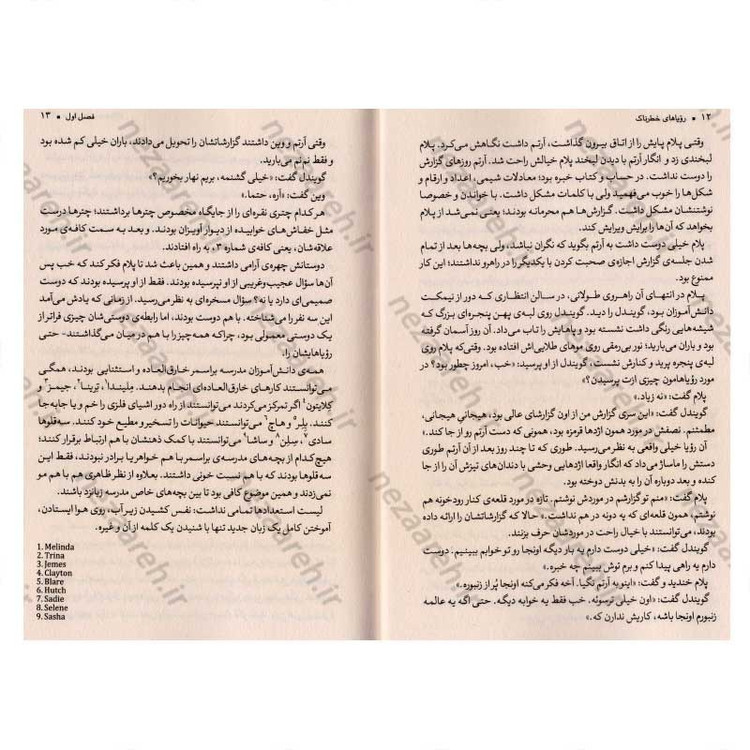 ۱۲ • رؤیاهای خطرناک
وقتی پلام پایش را از اتاق بیرون گذاشت، آرتم داشت نگاهش می‌کرد. پلام
لبخندی زد و انگار آرتم با دیدن لبخند پلام خیالش راحت شد. آرتم روزهای گزارش
را دوست نداشت. در حساب و کتاب خبره بود؛ معادلات شیمی، اعداد و ارقام و
شکل‌ها را خوب می‌فهمید ولی با کلمات مشکل داشت. با خواندن و خصوصا
نوشتنشان مشکل داشت. گزارش‌ها هم محرمانه بودند؛ یعنی نمی‌شد از پلام
بخواهد که آن‌ها را برایش ویرایش کند.
پلام خیلی دوست داشت به آرتم بگوید که نگران نباشد، ولی بچه‌ها بعد از تمام
شدن جلسه‌ی گزارش اجازه‌ی صحبت کردن با یکدیگر را در راهرو نداشتند؛ این کار
ممنوع بود.
پلام در انتهای آن راهروی طولانی، در سالن انتظاری که دور از نیمکت
دانش‌آموزان بود، گویندل را دید. گویندل روی لبه‌ی پهن پنجره‌ای بزرگ که
شیشه‌هایی رنگی داشت نشسته بود و پاهایش را تاب می‌داد. آن روز آسمان گرفته
بود و باران می‌بارید؛ نور بی‌رمقی روی موهای طلایی‌اش افتاده بود. وقتی‌که پلام روی
لبه‌ی پنجره پرید و کنارش نشست، گویندل از او پرسید: «خب، امروز چطور بود؟ در
مورد رؤیاهامون چیزی ازت پرسیدن؟»
پلام گفت: «نه زیاد.»
گویندل گفت: «این سری گزارش من از اون گزارشای عالی بود، هیجانی هیجانی،
مطمئنم. نصفش در مورد همون اژدها قرمزه بود، همونی که دست آرتم رو از جا کند.»
آن رؤیا خیلی واقعی به نظر می‌رسید. طوری که تا چند روز بعد از آن آرتم طوری
دستش را ماساژ می‌داد که انگار واقعا اژدهایی وحشی با دندان‌های تیزش آن را از جا
کنده و بعد دوباره آن را به بدنش دوخته بود.
پلام گفت: «منم تو گزارشم در موردش نوشتم. تازه در مورد قلعه‌ی کنار رودخونه هم
نوشتم. همون قلعه‌ای که یه دونه در هم نداشت.» حالا که گزارشاتشان را ارائه داده
بودند، می‌توانستند با خیال راحت در موردشان حرف بزنند.
گویندل گفت: «خیلی دوست دارم یه بار دیگه اونجا رو تو خوابم ببینم. دوست
دارم یه راهی پیدا کنم و برم توش ببینم چه خبره.»
پلام خندید و گفت: «اینو به آرتم نگیا. آخه فکر می‌کنه اونجا پُر از زنبوره.»
گویندل گفت: «اون خیلی ترسوئه. خب فقط یه خوابه دیگه. حتی اگه یه عالمه
زنبورم اونجا باشه، کاریش ندارن که.»
فصل اول • ۱۳
وقتی آرتم و وین داشتند گزارشاتشان را تحویل می‌دادند، باران خیلی کم شده بود
و فقط نم‌نم می‌بارید.
گویندل گفت: «خیلی گشنمه، بریم نهار بخوریم؟»
وین گفت: «آره، حتما.»
هر کدام چتری نقره‌ای را از جایگاه مخصوص چترها برداشتند؛ چترها درست
مثل خفاش‌های خوابیده از دیوار آویزان بودند. و بعد به سمت کافه‌ی مورد
علاقه‌شان، یعنی کافه‌ی شماره ۳، به راه افتادند.
دوستانش چهره‌ی آرامی داشتند و همین باعث شد تا پلام فکر کند که خب پس
آن‌ها سؤال عجیب‌وغریبی از او نپرسیده بودند. فقط از او پرسیده بودند که دوست
صمیمی‌ای دارد یا نه؟ سؤال مسخره‌ای به نظر می‌رسید. از زمانی که یادش می‌آمد
این سه نفر را می‌شناخته. با هم دوست بودند، اما رابطه‌ی دوستی‌شان چیزی فراتر از
یک دوستی معمولی بود، چراکه همه‌چیز را با هم در میان می‌گذاشتند- حتی
رؤیاهایشان را.
همه‌ی دانش‌آموزان مدرسه‌ی براسمر خارق‌العاده و استثنایی بودند، همگی
می‌توانستند کارهای خارق‌العاده‌ای انجام بدهند. مِلیندا۱، ترینا۲، جیمز۳ و
کلایتون۴ اگر تمرکز می‌کردند می‌توانستند از راه دور اشیای فلزی را خم و یا جابه‌جا
کنند. بِلِر۵ و هاچ۶ می‌توانستند حیوانات را تسخیر و مطیع خود کنند. سه‌قلوها
سادی۷، سِلِن۸ و ساشا۹ می‌توانستند با کمک ذهنشان با هم ارتباط برقرار کنند؛
هیچ‌کدام از بچه‌های مدرسه‌ی براسمر با هم خواهر یا برادر نبودند، فقط این
سه قلوها بودند که با هم نسبت خونی داشتند. بعلاوه از نظر ظاهری هم با هم مو
نمی‌زدند و همین موضوع کافی بود تا بین بچه‌های خاص مدرسه زبانزد باشند.
لیست استعدادها تمامی نداشت: نفس کشیدن زیر آب، روی هوا ایستادن،
آموختن کامل یک زبان جدید تنها با شنیدن یک کلمه از آن و غیره.
1. Melinda
2. Trina
3. Jemes
4. Clayton
5. Blare
6. Hutch
7. Sadie
8. Selene
9. Sasha
nezaareh.ir